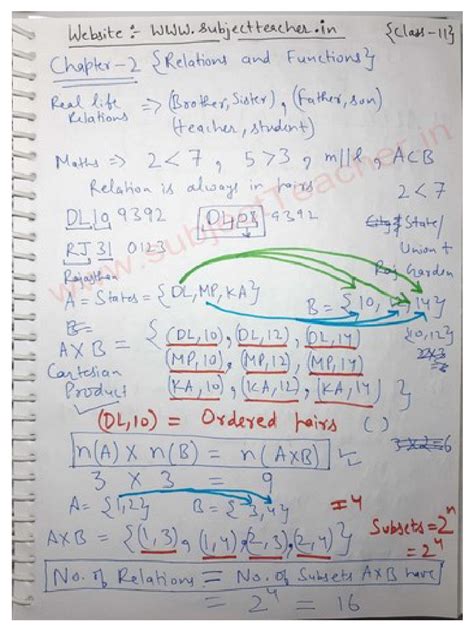 Website :- WWW.subjectteacher.in {Class-11}
Chapter-2 {Relations and Functions}
Real life Relations => (Brother, Sister), (Father, son)
(teacher, student)
Maths => 2 < 7 , 5 > 3 , m || l , A C B
Relation is always in pairs 2 < 7
DL 10 9392 DL 03 9392 State/
RJ 31 0123 Union t
Rajasthan Raj Garden
A = States = {DL, MP, KA} B = {10, 12, 14}
B = {10, 12}
A X B = { (DL,10), (DL,12), (DL,14)
Cartesian Product (MP,10), (MP,12), (MP,14)
(KA,10), (KA,12), (KA,14) }
(DL,10) = Ordered pairs ( )
3 x 2 = 6
n(A) X n(B) = n(AXB)
3 x 3 = 9
A = {1,2} B = {3,4} = 4
A X B = {(1,3), (1,4), (2,3), (2,4)} Subsets = 2ⁿ
= 2⁴
No. of Relations = No. of Subsets AXB have
= 2⁴ = 16
www.subjectTeacher.in